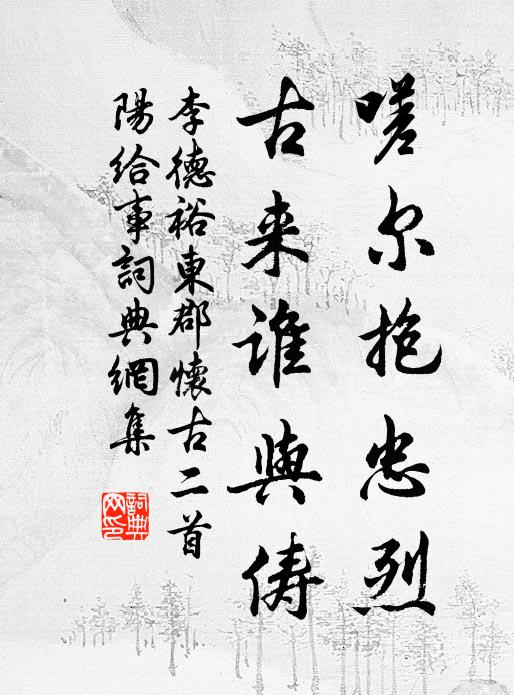 嗟尔抱忠烈
古来谁與俦
李德裕東郡懷古二首
陽给事詞典網集
詞典网印